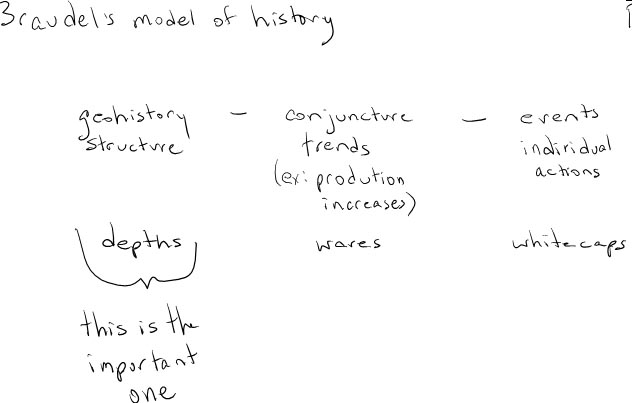 Braudel's model of history
geohistory — conjuncture — events
structure trends individual
(ex: prodution actions
increases)
depths waves whitecaps
this is the
important
one